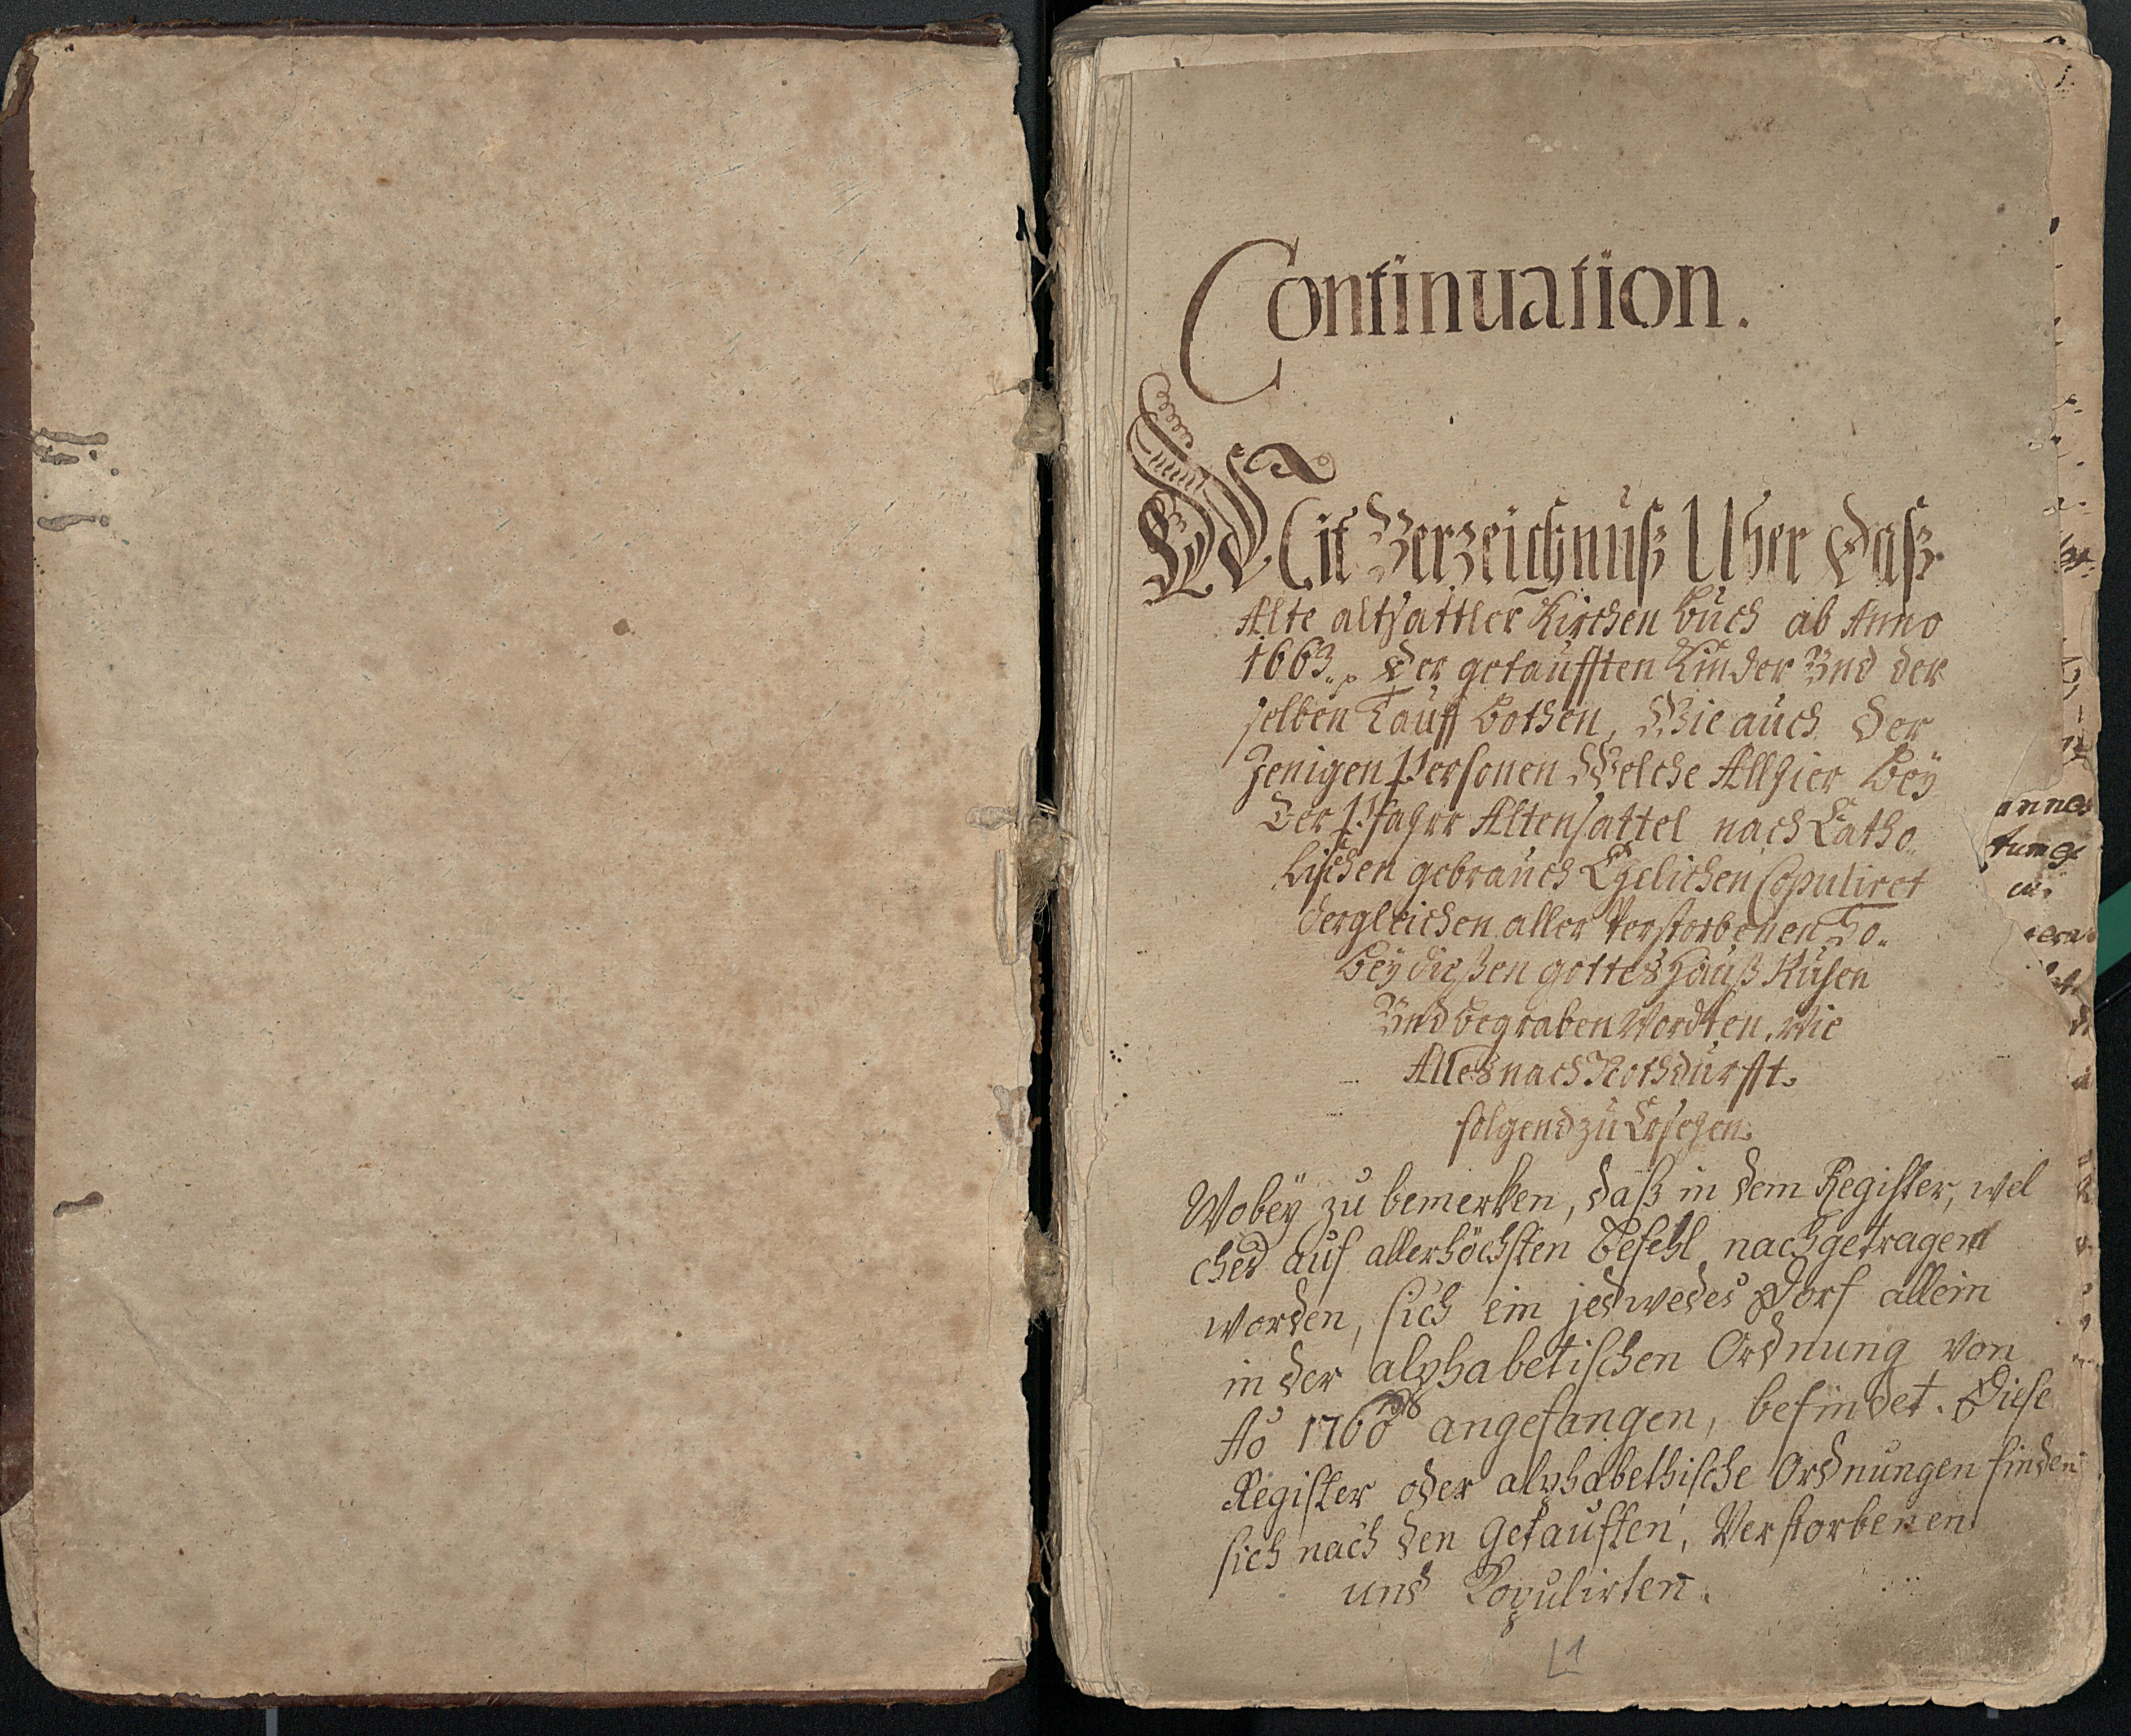 Continuation.
Mit Verzeichnüß Uber Daß
Alte altsattler Kirchen Buch ab Anno
1663. Der getaufften Kinder Vnd der
selben Tauff Bothen, Wie auch Der
Jenigen Personen Welche Allhier Beÿ
Der Pfahrr Altensattel nach Catho
lischen gebrauch Ehelichen Copuliret
dergleichen aller Verstorbenen So
Beÿ dießen gottes Hauß Ruhen
Vnd begraben Wordten, Wie
Alles nach Nothdurfft
folgend zu Ersehen.
Wobeÿ zu bemerken, daß in dem Register, wel
ches auf allerhöchsten Befehl nachgetragen
worden, sich ein jedwedes Dorf allein
in der alphabetischen Ordnung von
Ao 1760 angefangen, befindet. Diese
Register oder alphabethische Ordnungen finden
sich nach den Getauften, Verstorbenen
und Kopulirten.
annes
1